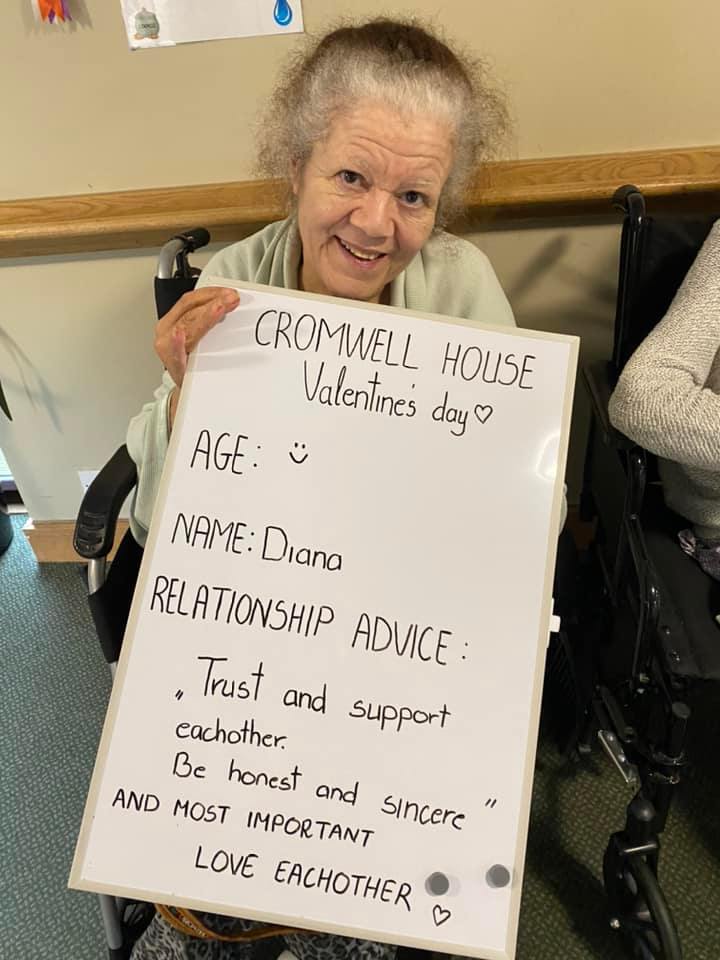 CROMWELL HOUSE
Valentine's day ♡
AGE: ☺
NAME: Diana
RELATIONSHIP ADVICE:
„Trust and support
eachother.
Be honest and sincere"
AND MOST IMPORTANT
LOVE EACHOTHER
♡